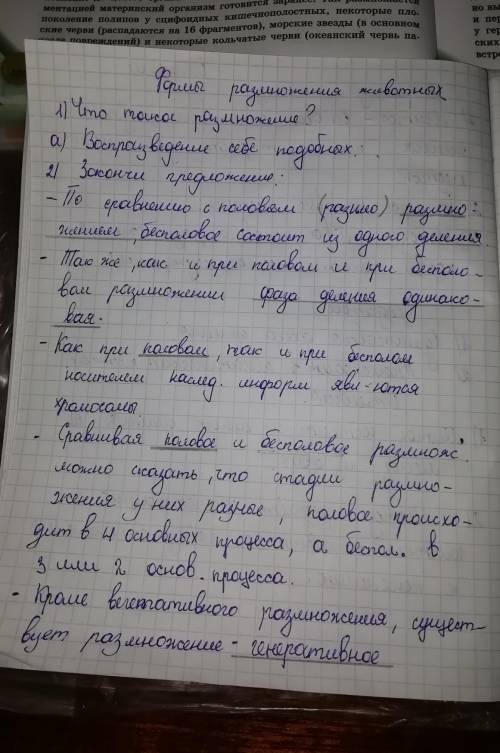 ментацией материнский организм готовится заранее.
поколение полипов у сцифоидных кишечнополостных, некоторые пло-
ские черви (распадаются на 16 фрагментов), морские звезды (в основном
повреждений) и некоторые кольчатые черви (океанский червь па-
Формы размножения животных
1) Что такое размножение?
а) Воспроизведение себе подобных.
2) Закончи предложение:
- По сравнению с половым (размно) размно-
жением, бесполовое состоит из одного деления.
- Так же, как и при половом и при бесполо-
вом размножении фаза деления одинако-
вая.
- Как при половом, так и при бесполом
носителем наслед. информ явл-ются
хромосомы.
- Сравнивая половое и бесполовое размнож.
можно сказать, что стадии размно-
жения у них разные, половое происхо-
дит в 4 основных процесса, а беспол. в
3 или 2 основ. процесса.
- Кроме вегетативного размножения, сущест-
вует размножение - генеративное